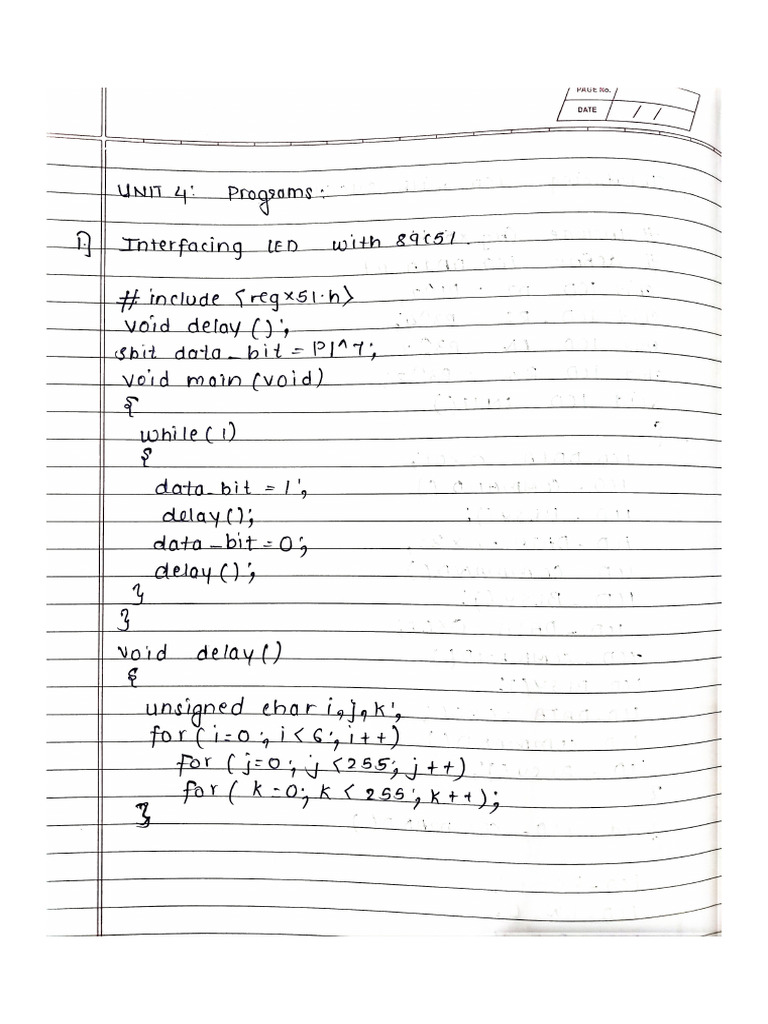 PAGE No.
DATE / /
UNIT 4: Programs:
1.] Interfacing LED with 89C51.
# include <regx51.h>
void delay ();
sbit data_bit = P1^7;
void main (void)
{
while(1)
{
data_bit = 1;
delay();
data_bit=0;
delay();
}
}
void delay()
{
unsigned char i,j,k;
for(i=0;i<6;i++)
for (j=0;j<255;j++)
for( k=0;k<255;k++);
}